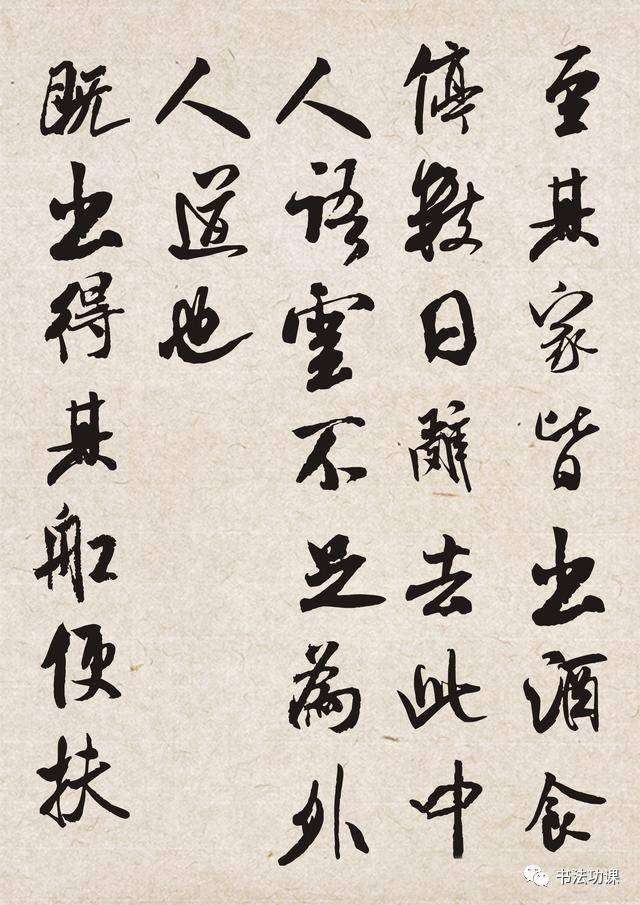 至其家皆出酒食
停數日辭去此中
人語雲不足為外
人道也
既出得其船便扶
书法功课